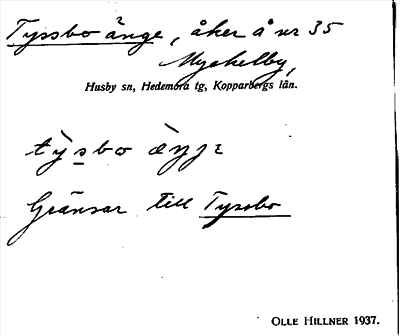 Tyssbo änge, åker å nr 35
Myckelby,
Husby sn, Hedemora tg, Kopparbergs län.
Gränsar till Tyssbo
OLLE HILLNER 1937.